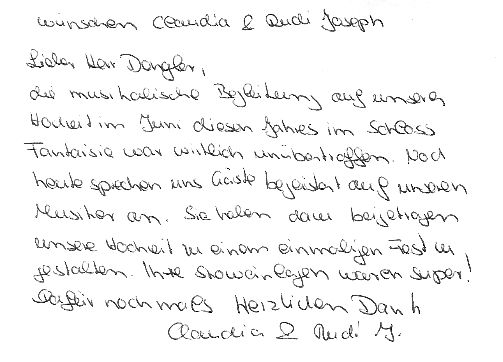 wünschen Claudia & Rudi Joseph
Lieber Herr Dangler,
die musikalische Begleitung auf unserer
Hochzeit im Juni diesen Jahres im Schloss
Fantaisie war wirklich unübertroffen. Noch
heute sprechen uns Gäste begeistert auf unseren
Musiker an. Sie haben dazu beigetragen
unsere Hochzeit zu einem einmaligen Fest zu
gestalten. Ihre Showeinlagen waren super!
Dafür nochmals Herzlichen Dank
Claudia & Rudi J.